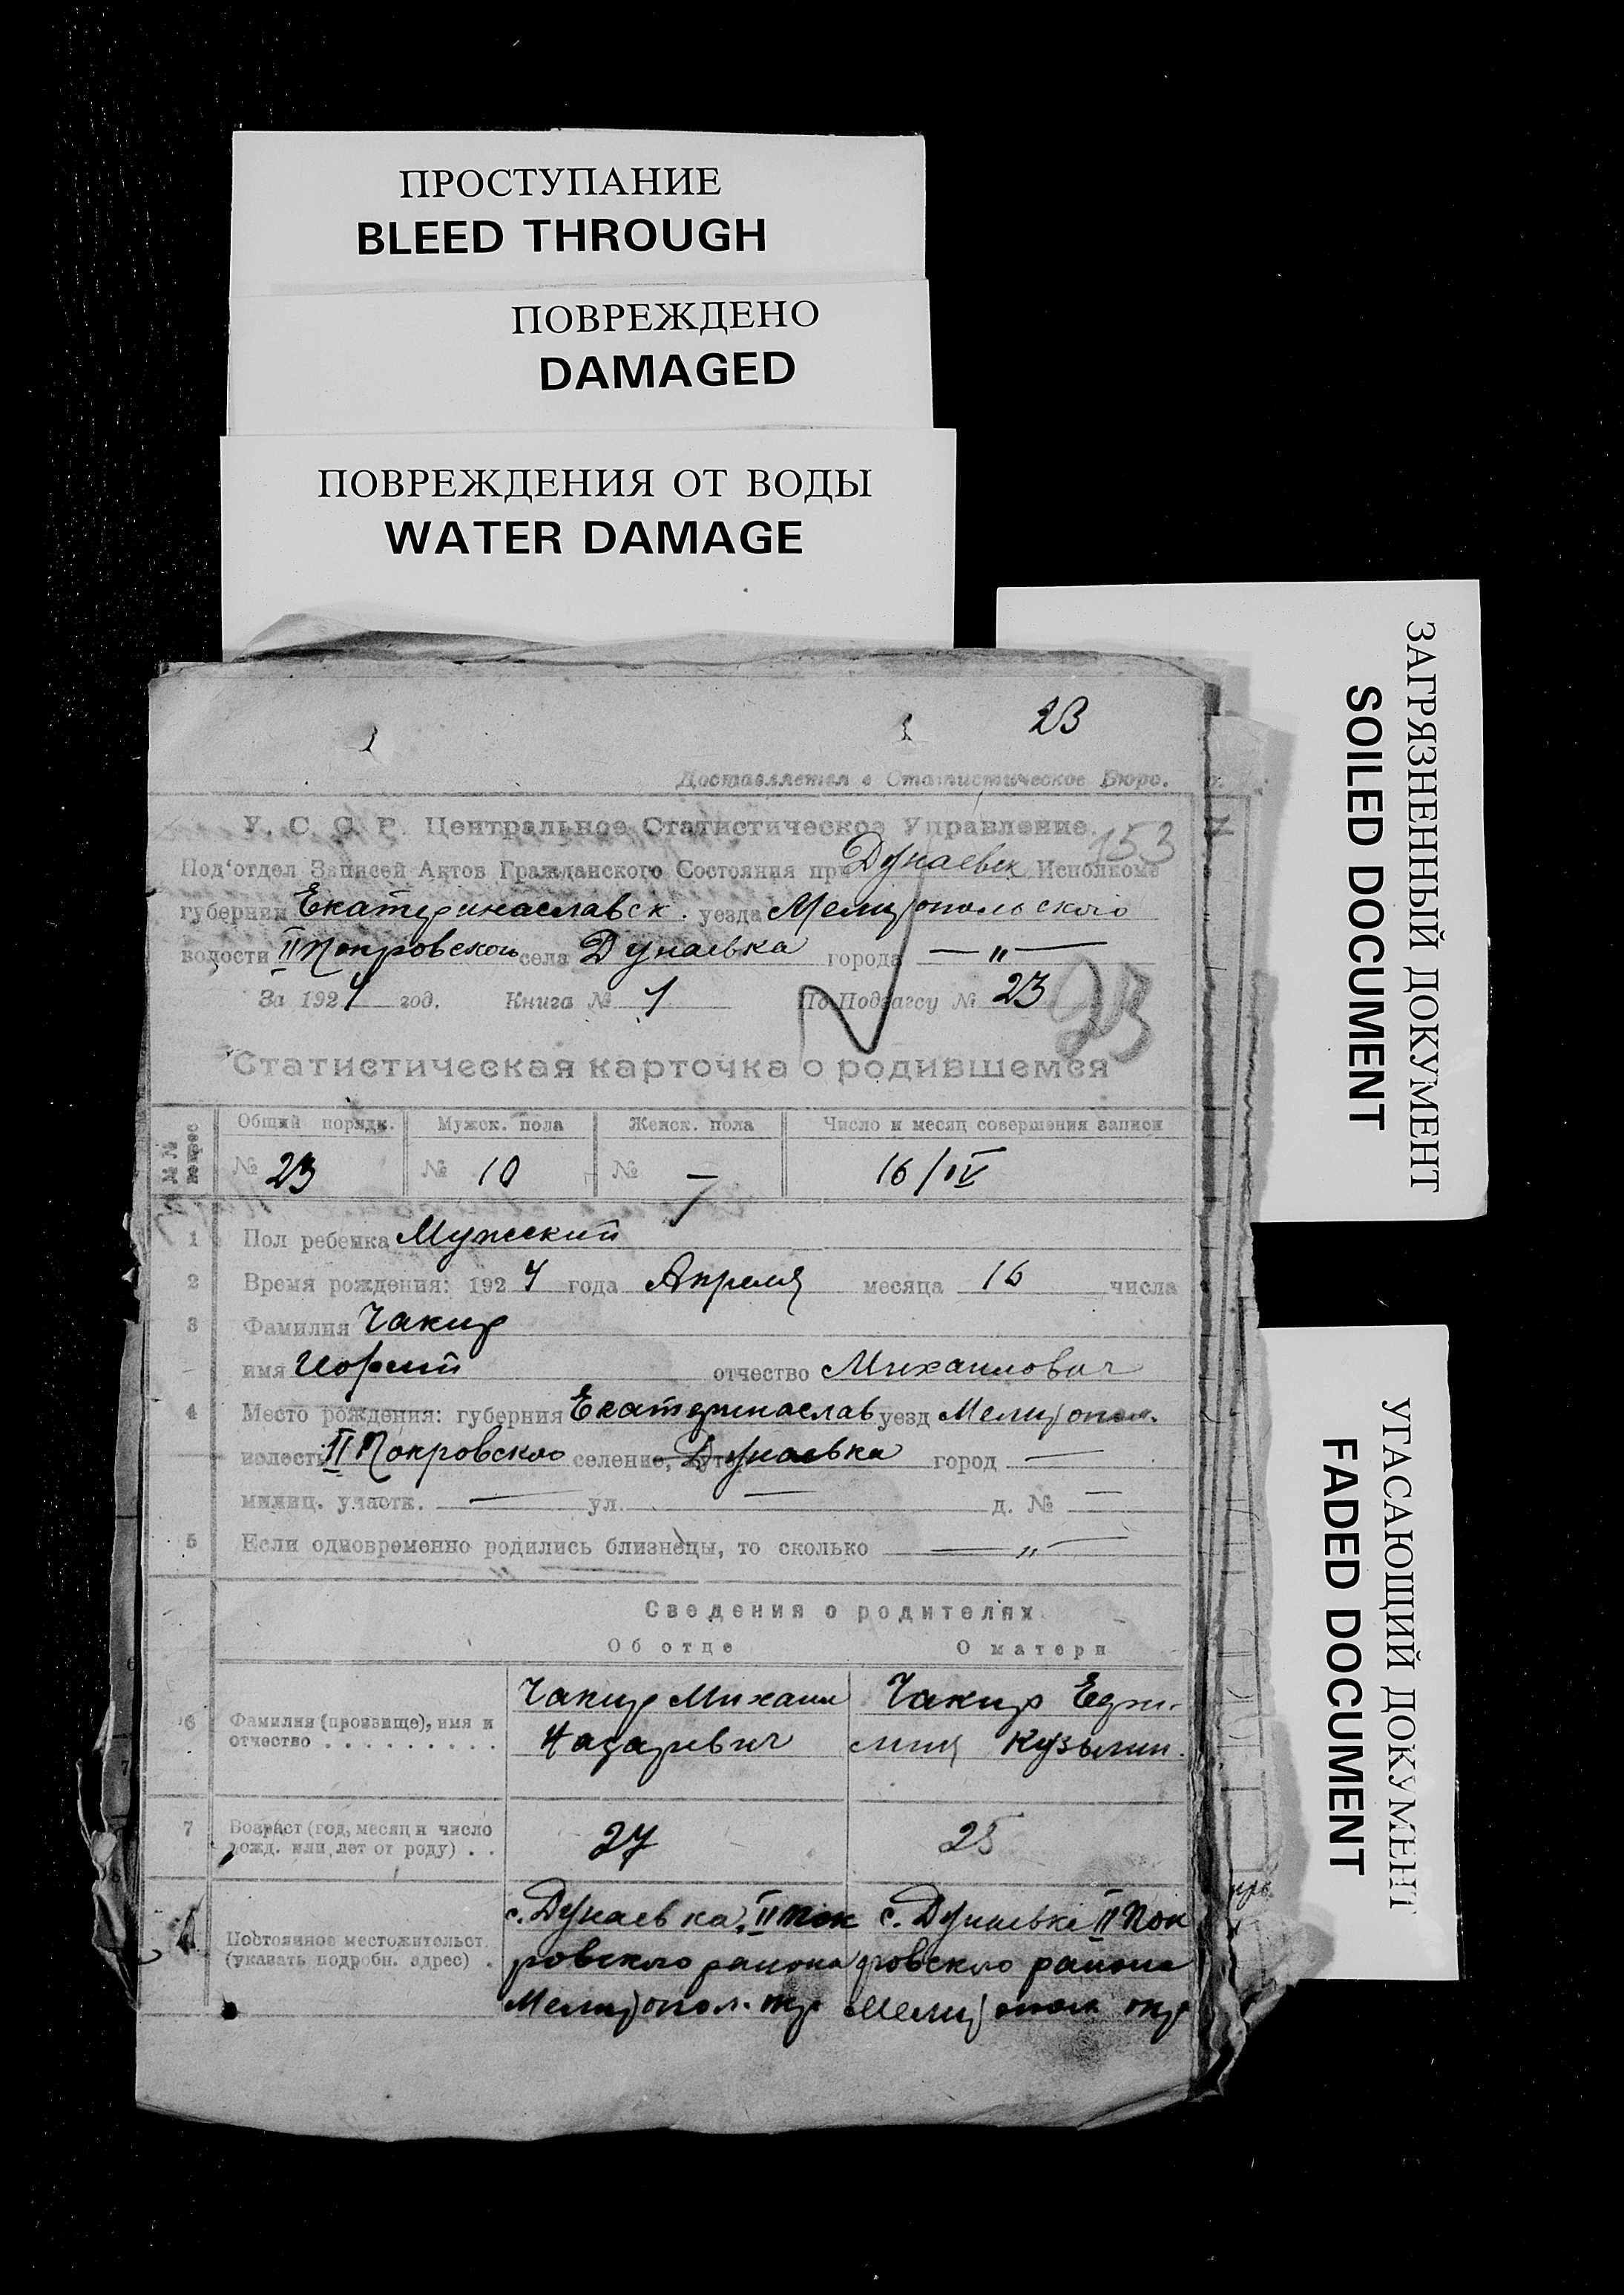 ПРОСТУПАНИЕ
BLEED THROUGH
ПОВРЕЖДЕНО
DAMAGED
ПОВРЕЖДЕНИЯ ОТ ВОДЫ
WATER DAMAGE
ЗАГРЯЗНЕННЫЙ ДОКУМЕНТ
SOILED DOCUMENT
УГАСАЮЩИЙ ДОКУМЕНТ
FADED DOCUMENT
23
Доставляется в Статистическое Бюро.
У. С. С. Р. Центральное Статистическое Управление.
153
Под'отдел Записей Актов Гражданского Состояния при Дунаевск Исполкоме
губернии Екатеринаславск. уезда Мелитопольского
волости II Покровского села Дунаевка города — " —
За 1924 год. Книга № 1 По Подзагсу № 23
23
Статистическая карточка о родившемся
№ № вопрос Общий порядк. Мужск. пола Женск. пола Число и месяц совершения записи
№ 23 № 10 № — 16/IV
1 Пол ребенка Мужский
2 Время рождения: 1924 года Апреля месяца 16 числа
3 Фамилия Чакир
имя отчество Михаилович
4 Место рождения: губерния Екатеринаслав уезд Мелитопол.
волость II Покровского селение, Дунаевка город —
милиц. участк. — ул. — д. № —
5 Если одновременно родились близнецы, то сколько — " —
Сведения о родителях
Об отце О матери
6 Фамилия (прозвище), имя и отчество . . . . . . . . .
Чакир Михаил
Назаревич
Чакир
Кузьмин.
7 Возраст (год, месяц и число рожд. или лет от роду) . .
27 25
Постоянное местожительст. (указать подробн. адрес) .
с. Дунаевка, II Пок
ровского района
Мелитопол. окр
с. Дунаевка II Пок
ровского района
Мелитопол окр